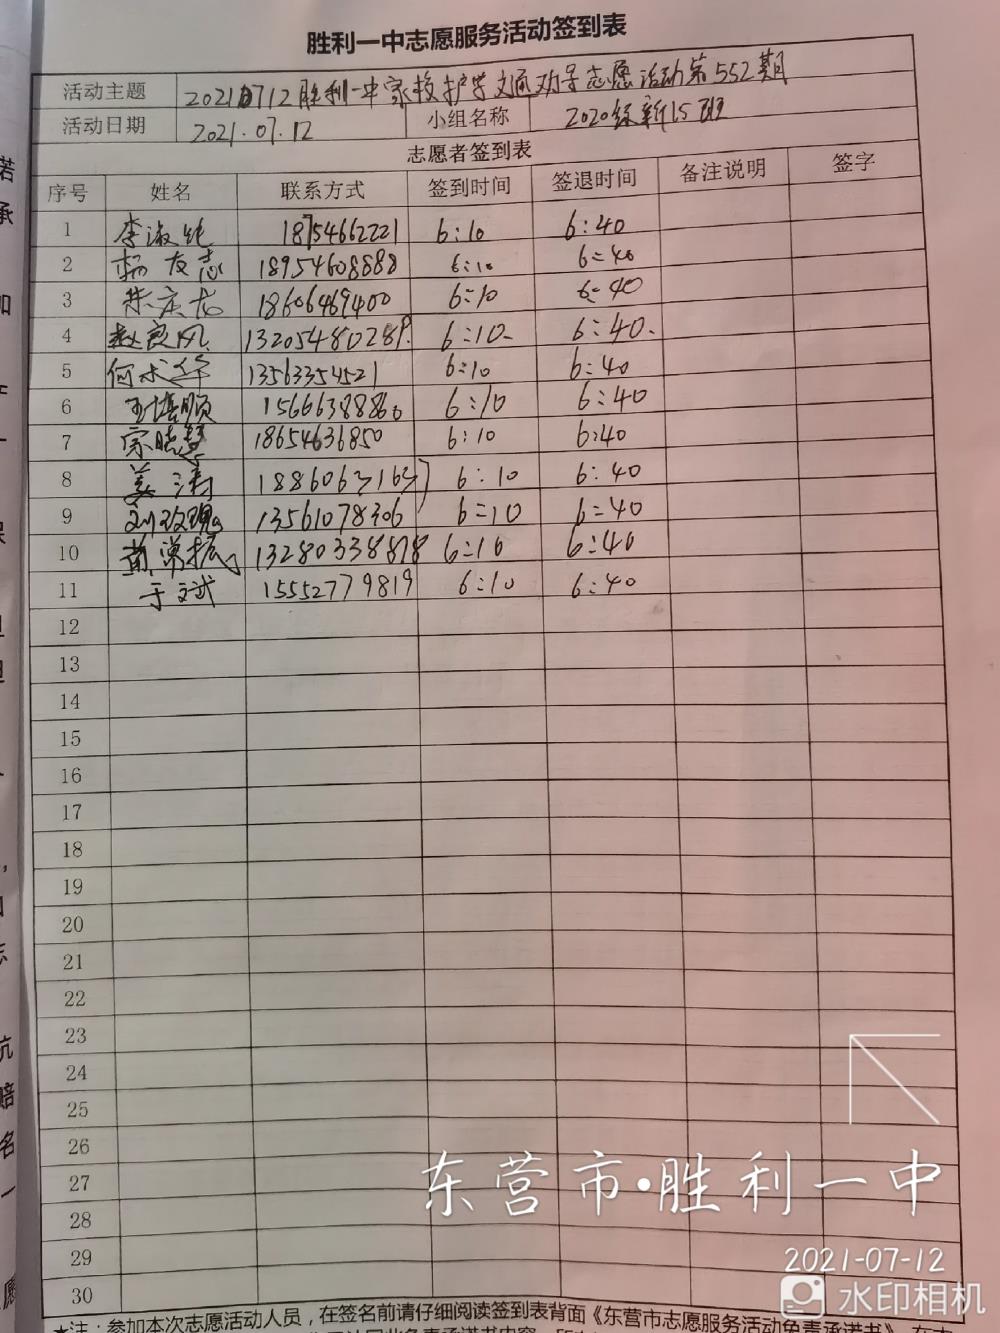 胜利一中志愿服务活动签到表
活动主题 20210712胜利一中家校护学交通劝导志愿活动第552期
活动日期 2021.07.12 小组名称 2020级新15班
志愿者签到表
序号 姓名 联系方式 签到时间 签退时间 备注说明 签字
1 李淑纯 18754662221 6:10 6:40
2 杨友志 18954608888 6:10 6:40
3 18606469400 6:10 6:40
4 赵良凤 13205480289 6:10 6:40
5 何术华 13563354521 6:10 6:40
6 王培顺 15666388860 6:10 6:40
7 宗晓慧 18654636850 6:10 6:40
8 姜涛 6:10 6:40
9 刘玫瑰 13561078306 6:10 6:40
10 13280338878 6:10 6:40
11 于文斌 15552779819 6:10 6:40
12
13
14
15
16
17
18
19
20
21
22
23
24
25
26
27
28
29
30
东营市•胜利一中
2021-07-12
水印相机
★注：参加本次志愿活动人员，在签名前请仔细阅读签到表背面《东营市志愿服务活动免责承诺书》，在本